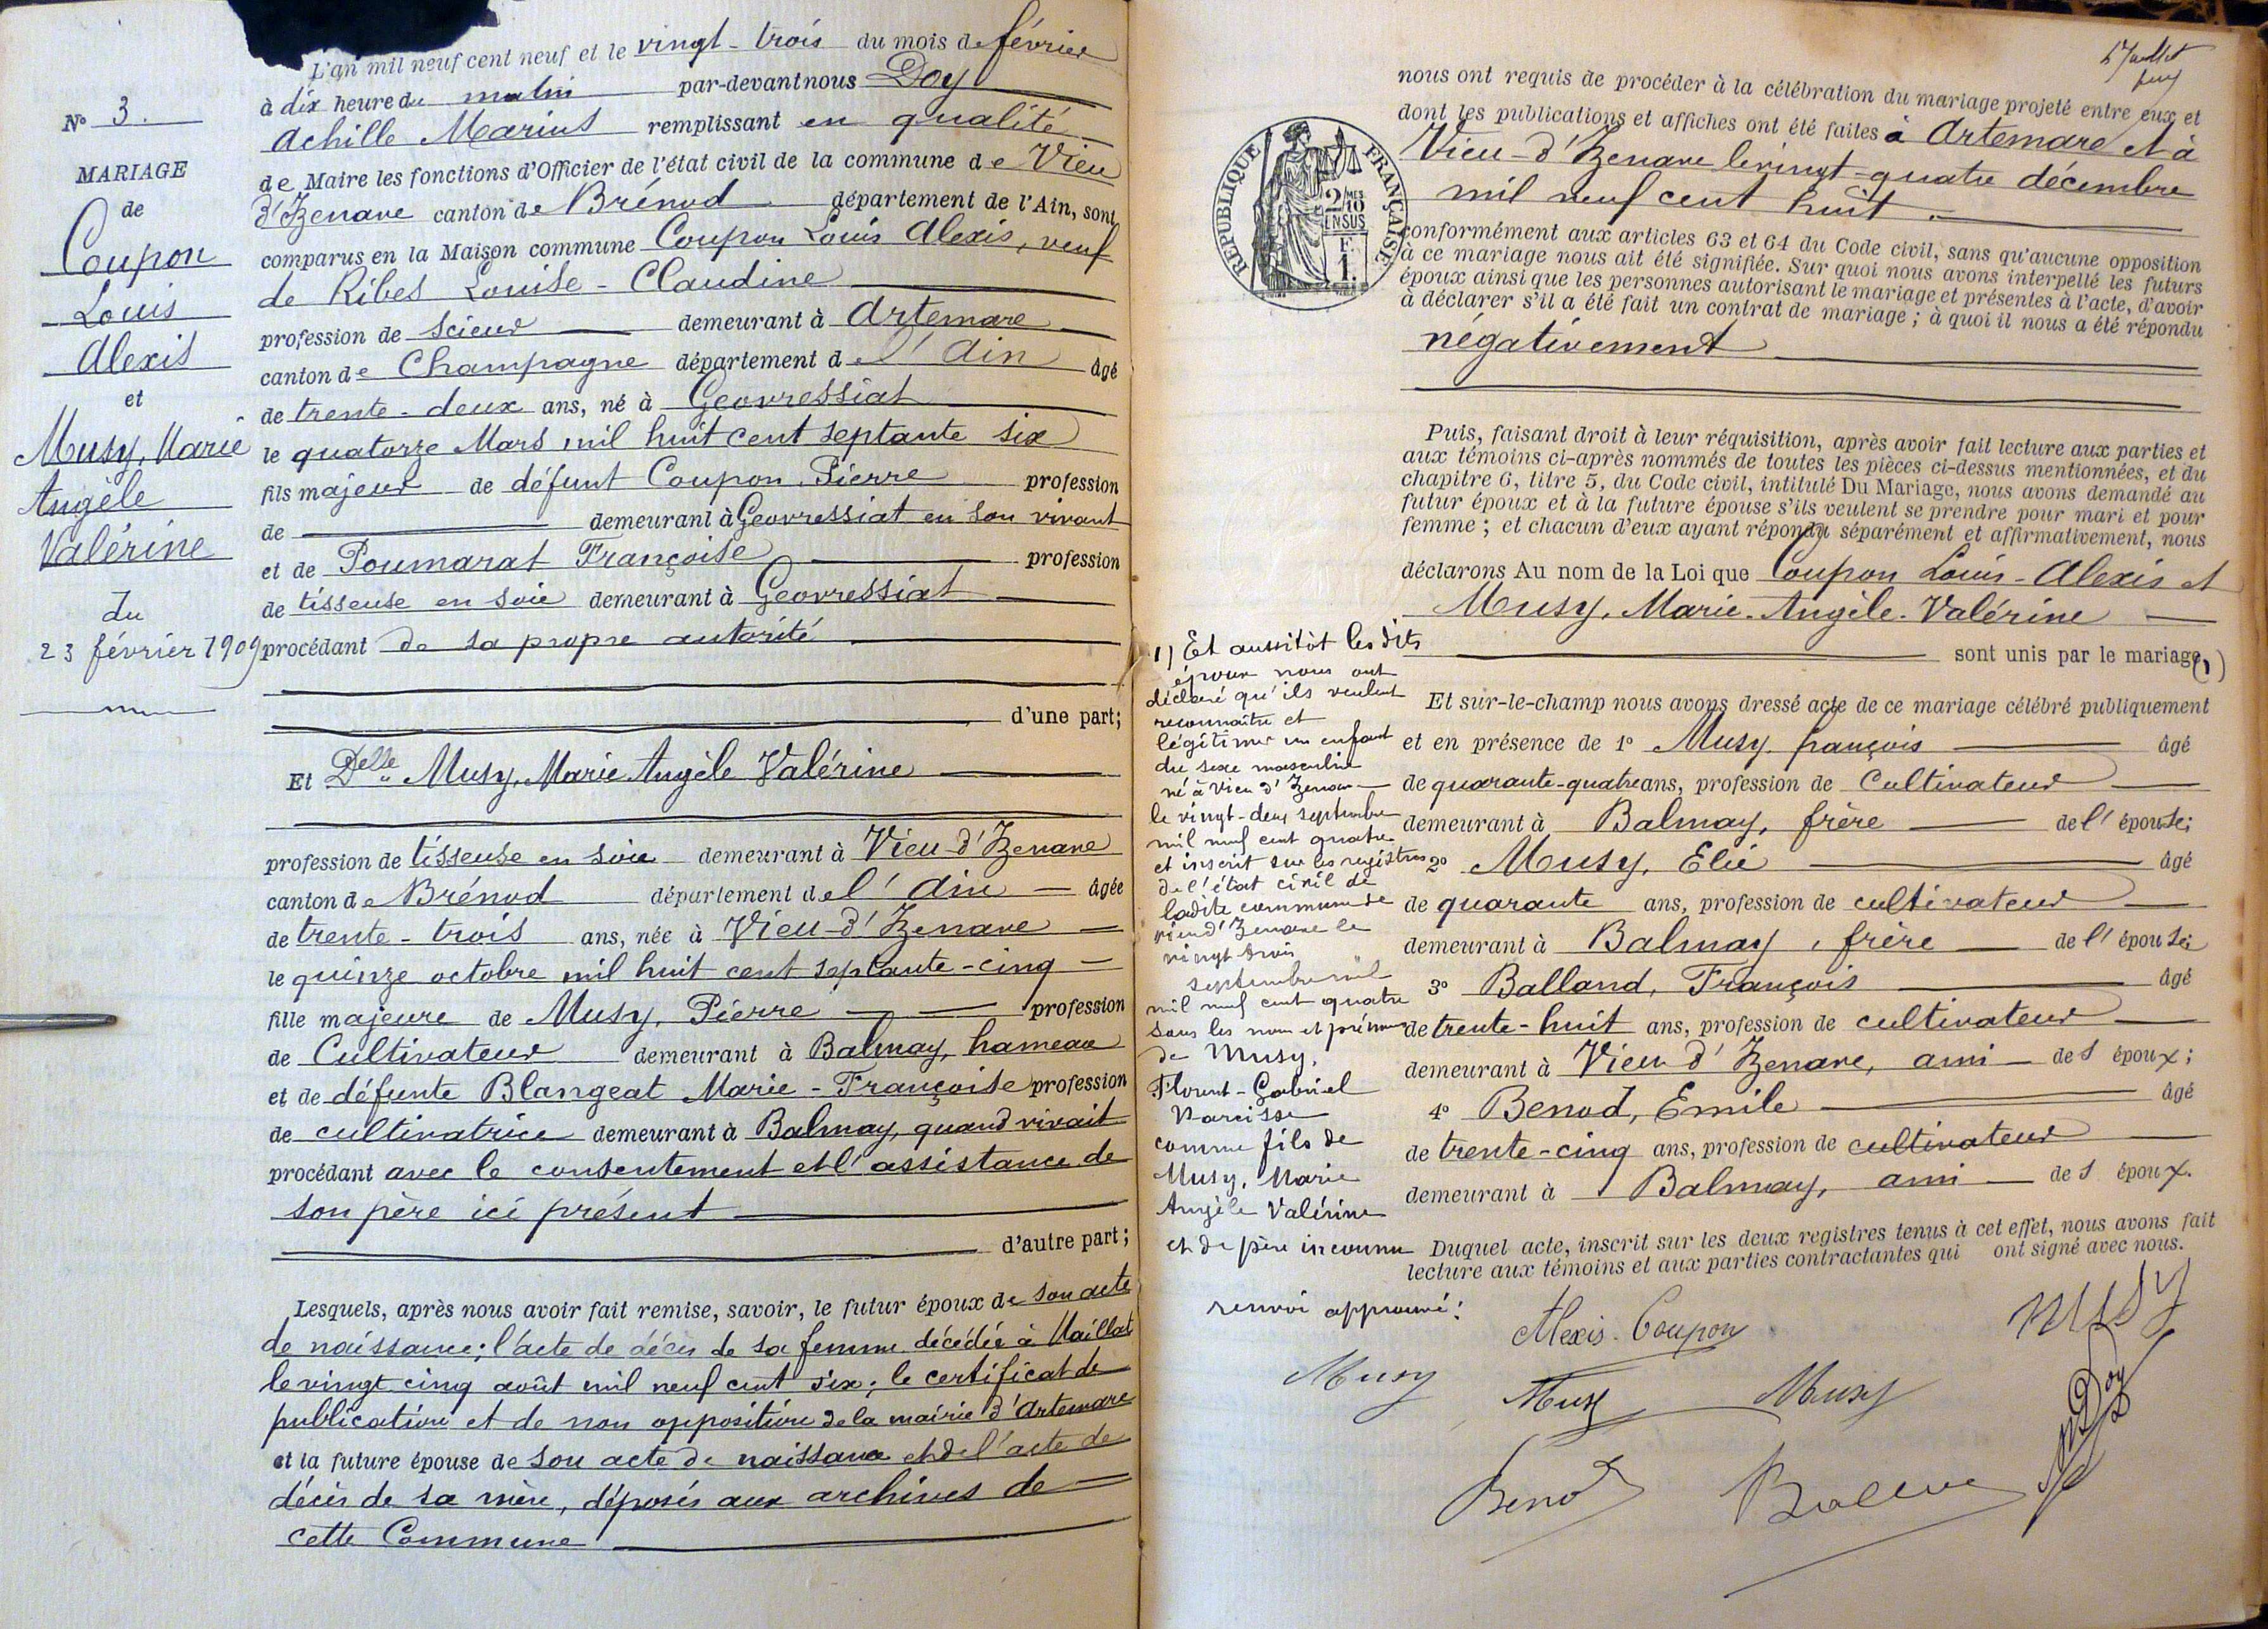 N° 3.
MARIAGE
de
Coupon
Louis
Alexis
et
Musy, Marie
Angèle
Valérine
du
23 février 1909
L'an mil neuf cent neuf et le vingt-trois du mois de février
à dix heure du matin par-devant nous Doy
Achille Marius remplissant en qualité
de Maire les fonctions d'Officier de l'état civil de la commune de Vieu
d'Izenave canton de Brénod département de l'Ain, sont
comparus en la Maison commune Coupon Louis Alexis, veuf
de Ribes Louise-Claudine
profession de scieur demeurant à Artemare
canton de Champagne département de l'Ain âgé
de trente-deux ans, né à Geovressiat
le quatorze Mars mil huit cent septante six
fils majeur de défunt Coupon Pierre profession
de demeurant à Geovressiat en son vivant
et de Poumarat Françoise profession
de tisseuse en soie demeurant à Geovressiat
procédant de sa propre autorité
d'une part;
Et Delle Musy, Marie Angèle Valérine
profession de tisseuse en soie demeurant à Vieu-d'Izenave
canton de Brénod département de l'Ain âgée
de trente-trois ans, née à Vieu-d'Izenave
le quinze octobre mil huit cent septante-cinq
fille majeure de Musy, Pierre profession
de Cultivateur demeurant à Balmay, hameau
et de défunte Blangeat Marie-Françoise profession
de cultivatrice demeurant à Balmay, quand vivait
procédant avec le consentement et l'assistance de
son père ici présent
d'autre part;
Lesquels, après nous avoir fait remise, savoir, le futur époux de son acte
de naissance; l'acte de décès de sa femme décédée à Maillat
le vingt cinq août mil neuf cent six; le certificat de
publication et de non opposition de la mairie d'Artemare
et la future épouse de son acte de naissance et de l'acte de
décès de sa mère, déposés aux archives de
cette Commune
nous ont requis de procéder à la célébration du mariage projeté entre eux et
dont les publications et affiches ont été faites à Artemare et à
Vieu-d'Izenave le vingt-quatre décembre
mil neuf cent huit.
RÉPUBLIQUE FRANÇAISE
2/10 MES
EN SUS
F.
1.
conformément aux articles 63 et 64 du Code civil, sans qu'aucune opposition
à ce mariage nous ait été signifiée. Sur quoi nous avons interpellé les futurs
époux ainsi que les personnes autorisant le mariage et présentes à l'acte, d'avoir
à déclarer s'il a été fait un contrat de mariage; à quoi il nous a été répondu
négativement
Puis, faisant droit à leur réquisition, après avoir fait lecture aux parties et
aux témoins ci-après nommés de toutes les pièces ci-dessus mentionnées, et du
chapitre 6, titre 5, du Code civil, intitulé Du Mariage, nous avons demandé au
futur époux et à la future épouse s'ils veulent se prendre pour mari et pour
femme; et chacun d'eux ayant répondu séparément et affirmativement, nous
déclarons Au nom de la Loi que Coupon Louis-Alexis et
Musy, Marie-Angèle-Valérine
sont unis par le mariage (1)
Et sur-le-champ nous avons dressé acte de ce mariage célébré publiquement
et en présence de 1° Musy françois âgé
de quarante-quatre ans, profession de Cultivateur
demeurant à Balmay, frère de l'épouse;
2° Musy, Elie âgé
de quarante ans, profession de cultivateur
demeurant à Balmay, frère de l'épouse;
3° Balland, François âgé
de trente-huit ans, profession de cultivateur
demeurant à Vieu d'Izenave, ami des époux;
4° Benod, Emile âgé
de trente-cinq ans, profession de cultivateur
demeurant à Balmay, ami des époux.
Duquel acte, inscrit sur les deux registres tenus à cet effet, nous avons fait
lecture aux témoins et aux parties contractantes qui ont signé avec nous.
1) Et aussitôt les dits
époux nous ont
déclaré qu'ils veulent
reconnaître et
légitimer un enfant
du sexe masculin
né à Vieu d'Izenave
le vingt-deux septembre
mil neuf cent quatre
et inscrit sur les registres
de l'état civil de
ladite commune de
Vieu d'Izenave le
vingt trois
septembre mil
mil neuf cent quatre
sous les nom et prénoms
de Musy,
Florent-Gabriel
Narcisse
comme fils de
Musy, Marie
Angèle Valérine
et de père inconnu
renvoi approuvé:
Alexis Coupon
Musy
Musy
Musy
Musy
Doy
Benod